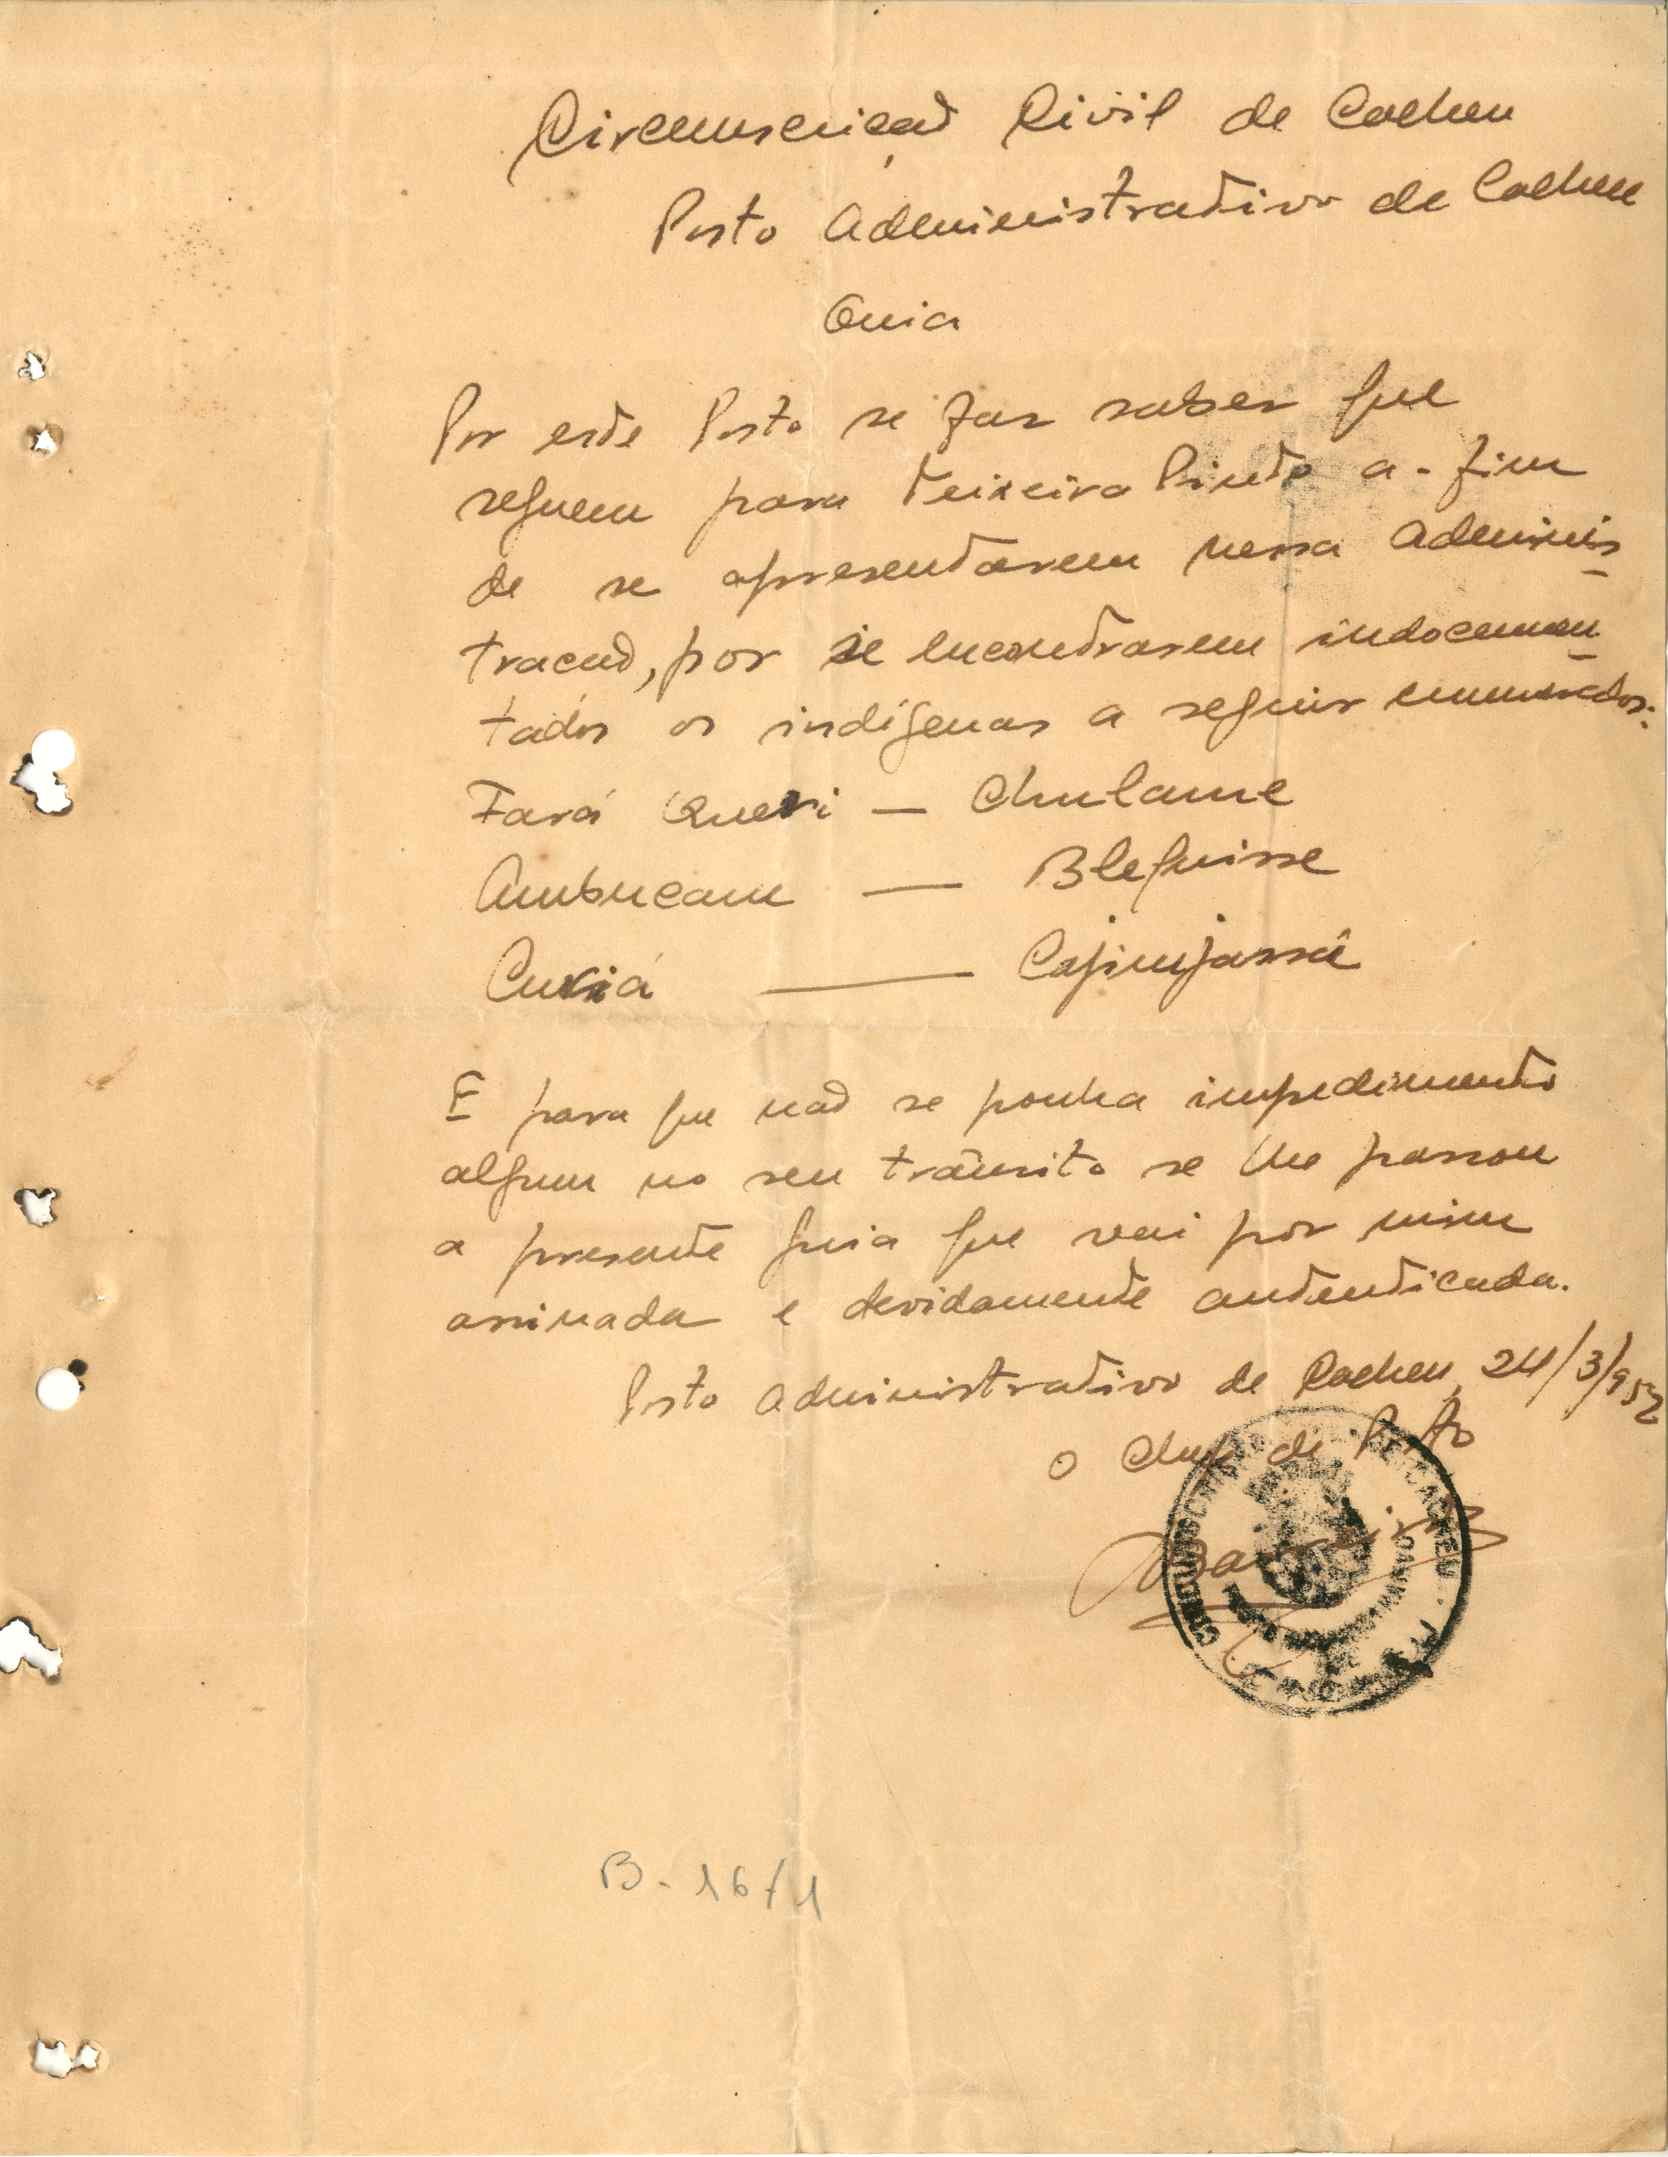 Circunscrição Civil de Cacheu
Posto Administrativo de Cacheu
Guia
Por este Posto se faz saber que
seguem para Teixeira Pinto a-fim
de se apresentarem nessa Adminis
tração, por se encontrarem indocumen
tados os indígenas a seguir enumerados:
Fará Queri — Chulame
Ambucam — Bleguisse
Curiá — Cajinjassá
E para que não se ponha impedimento
algum no seu trânsito se lhe passou
a presente guia que vai por mim
assinada e devidamente autenticada.
Posto Administrativo de Cacheu, 24/3/952
O Chefe de Posto
B. 16/1